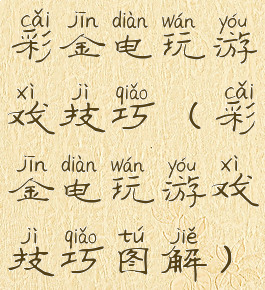 cǎi jīn diàn wán yóu
彩金电玩游
xì jì qiǎo cǎi
戏技巧（彩
jīn diàn wán yóu xì
金电玩游戏
jì qiǎo tú jiě
技巧图解）